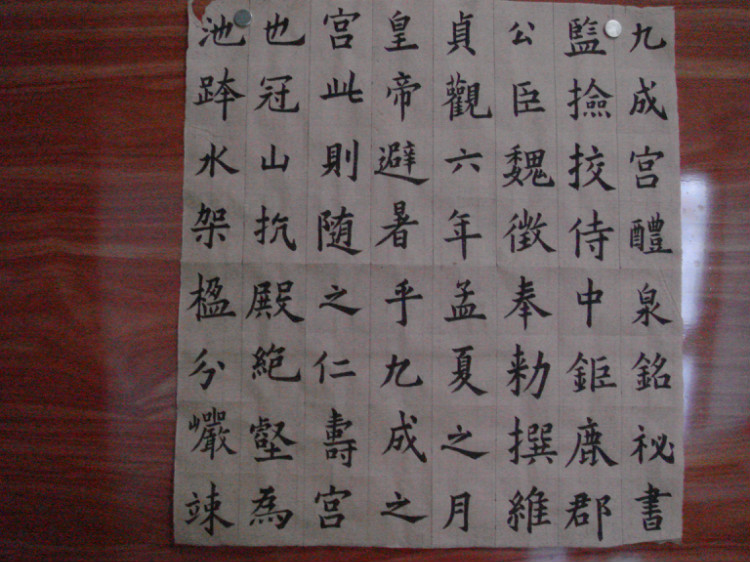 九成宮醴泉銘祕書
監撿挍侍中鉅鹿郡
公臣魏徵奉勑撰維
貞觀六年孟夏之月
皇帝避暑乎九成之
宮此則随之仁壽宮
也冠山抗殿絕壑為
池跨水架楹分巖竦